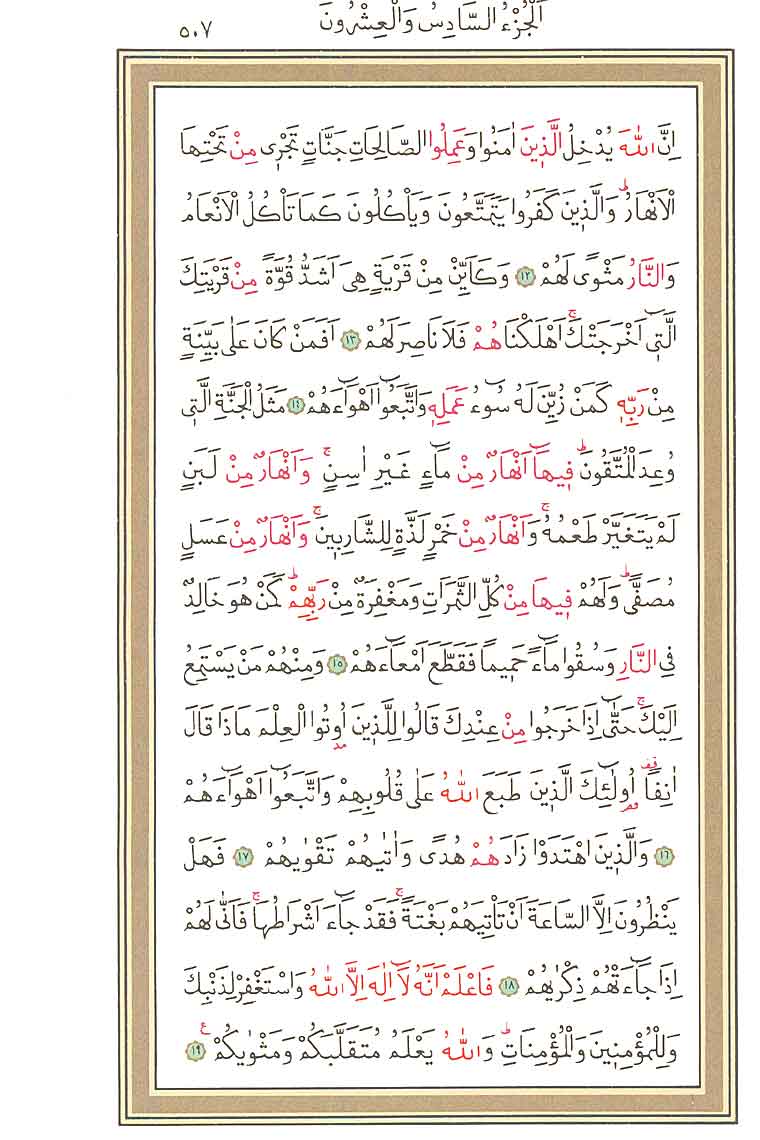 اَلْجُزْءُ السَّادِسُ وَالْعِشْرُونَ
٥٠٧
اِنَّ اللّٰهَ يُدْخِلُ الَّذٖينَ اٰمَنُوا وَعَمِلُوا الصَّالِحَاتِ جَنَّاتٍ تَجْرٖى مِنْ تَحْتِهَا
الْاَنْهَارُؕ وَالَّذٖينَ كَفَرُوا يَتَمَتَّعُونَ وَيَاْكُلُونَ كَمَا تَاْكُلُ الْاَنْعَامُ
وَالنَّارُ مَثْوًى لَهُمْ ﴿١٢﴾ وَكَاَيِّنْ مِنْ قَرْيَةٍ هِىَ اَشَدُّ قُوَّةً مِنْ قَرْيَتِكَ
الَّتٖٓى اَخْرَجَتْكَۚ اَهْلَكْنَاهُمْ فَلَا نَاصِرَ لَهُمْ ﴿١٣﴾ اَفَمَنْ كَانَ عَلٰى بَيِّنَةٍ
مِنْ رَبِّهٖ كَمَنْ زُيِّنَ لَهُ سُٓوءُ عَمَلِهٖ وَاتَّبَعُٓوا اَهْوَٓاءَهُمْ ﴿١٤﴾ مَثَلُ الْجَنَّةِ الَّتٖى
وُعِدَ الْمُتَّقُونَؕ فٖيهَٓا اَنْهَارٌ مِنْ مَٓاءٍ غَيْرِ اٰسِنٍۚ وَاَنْهَارٌ مِنْ لَبَنٍ
لَمْ يَتَغَيَّرْ طَعْمُهُۚ وَاَنْهَارٌ مِنْ خَمْرٍ لَذَّةٍ لِلشَّارِبٖينَۚ وَاَنْهَارٌ مِنْ عَسَلٍ
مُصَفًّىؕ وَلَهُمْ فٖيهَا مِنْ كُلِّ الثَّمَرَاتِ وَمَغْفِرَةٌ مِنْ رَبِّهِمْؕ كَمَنْ هُوَ خَالِدٌ
فِى النَّارِ وَسُقُوا مَٓاءً حَمٖيمًا فَقَطَّعَ اَمْعَٓاءَهُمْ ﴿١٥﴾ وَمِنْهُمْ مَنْ يَسْتَمِعُ
اِلَيْكَۚ حَتّٰٓى اِذَا خَرَجُوا مِنْ عِنْدِكَ قَالُوا لِلَّذٖينَ اُوتُوا الْعِلْمَ مَاذَا قَالَ
اٰنِفًا اُو۬لٰٓئِكَ الَّذٖينَ طَبَعَ اللّٰهُ عَلٰى قُلُوبِهِمْ وَاتَّبَعُٓوا اَهْوَٓاءَهُمْ
﴿١٦﴾ وَالَّذٖينَ اهْتَدَوْا زَادَهُمْ هُدًى وَاٰتٰيهُمْ تَقْوٰيهُمْ ﴿١٧﴾ فَهَلْ
يَنْظُرُونَ اِلَّا السَّاعَةَ اَنْ تَاْتِيَهُمْ بَغْتَةًۚ فَقَدْ جَٓاءَ اَشْرَاطُهَاۚ فَاَنّٰى لَهُمْ
اِذَا جَٓاءَتْهُمْ ذِكْرٰيهُمْ ﴿١٨﴾ فَاعْلَمْ اَنَّهُ لَٓا اِلٰهَ اِلَّا اللّٰهُ وَاسْتَغْفِرْ لِذَنْبِكَ
وَلِلْمُؤْمِنٖينَ وَالْمُؤْمِنَاتِؕ وَاللّٰهُ يَعْلَمُ مُتَقَلَّبَكُمْ وَمَثْوٰيكُمْ ﴿١٩﴾